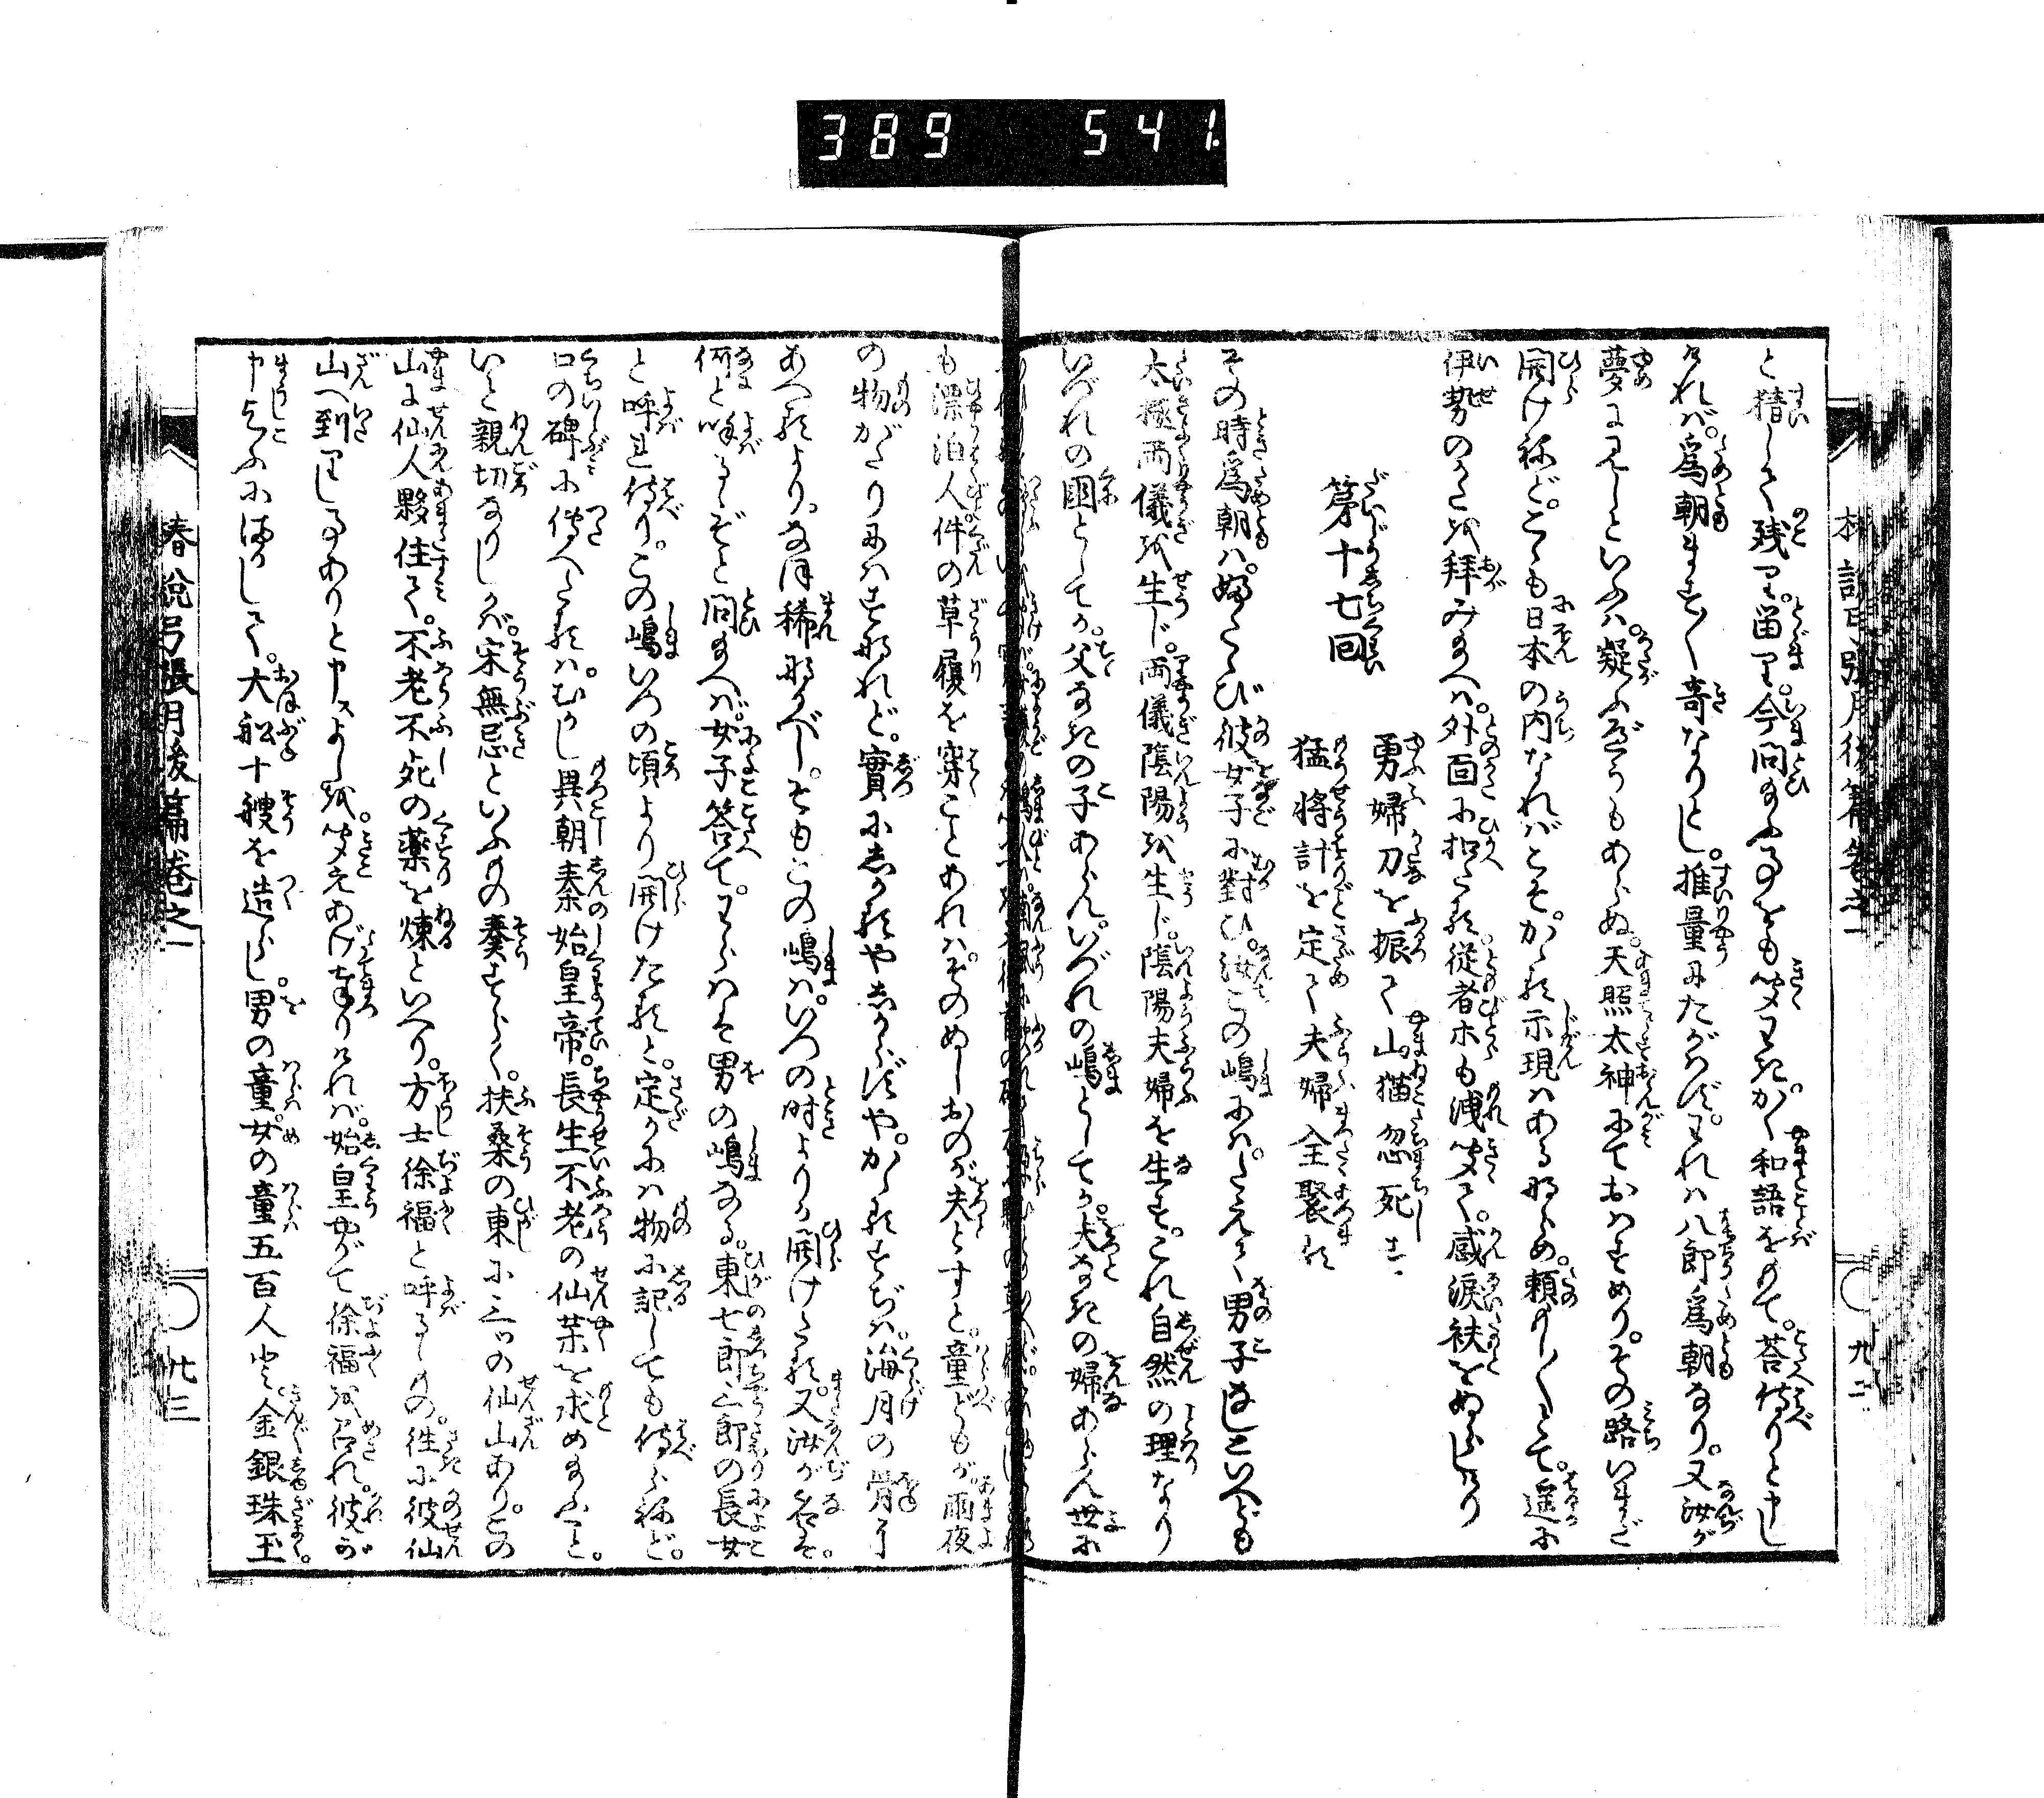 389 541
と猜して残り留り今問給ふ事をも聞わき。かく和語をもて。荅侍りと申し
ければ。爲朝ますます竒なりとし。推量にたがはず。われハ八郎爲朝なり。又汝が
夢に見しといふハ。疑ふべうもあらぬ。天照太神にておはすめり。その路いまだ
開けねど。こゝも日本の内なればこそ。かゝる示現ハある也らめ。頼もしくて。遥に
伊勢のかたを拜み給へハ。外面に扣たる。従者ホも洩聞て。感涙袂をぬらしけり
第十七回
勇婦刀を振て山猫忽死す
猛將計を定て夫婦全聚る
その時爲朝ハ。ふたゝび彼女子に對ひ。汝この嶋にハ。たえて男子なしといへども
太極両儀を生じ。両儀陰陽を生じ。陰陽夫婦を生す。これ自然の理なり
いづれの國としてか。父なきの子あらん。いづれの嶋としてか。夫なきの婦あらん。世に
も漂泊人件の草履を穿ことあれハ。そのぬしおのが夫とすと。童どもが雨夜
の物がたりにハすなれど。實にしかるやしからずや。かゝるすぢハ。海月の骨に
あへるより。なほ稀なるべし。そもこの嶋ハ。いつの時よりか開けたる。又汝が名を。
何と呼るゝぞと問給へば。女子荅て。わらハは男の嶋なる。東七郎三郎の長女
と呼れ侍り。この嶋いつの頃より開けたると。定かにハ物に記しても侍らねど。
口の碑に傳へたるハ。むかし異朝秦始皇帝。長生不老の仙薬を求め給ふこと。
いと親切なりしかバ。宋無忌といふもの奏すらく。扶桑の東に三ツの仙山あり。この
山に仙人夥住て。不老不死の藥を煉といへり。方士徐福と呼るゝもの。徃に彼仙
山へ到りし事ありと申スよしを聞えあげ奉りけれバ。始皇やがて徐福を召れ。彼が
申よふに任して。大舩十艘を造らし。男の童。女の童五百人に。金銀珠玉
春說弓張月後篇巻之一
九二
九三